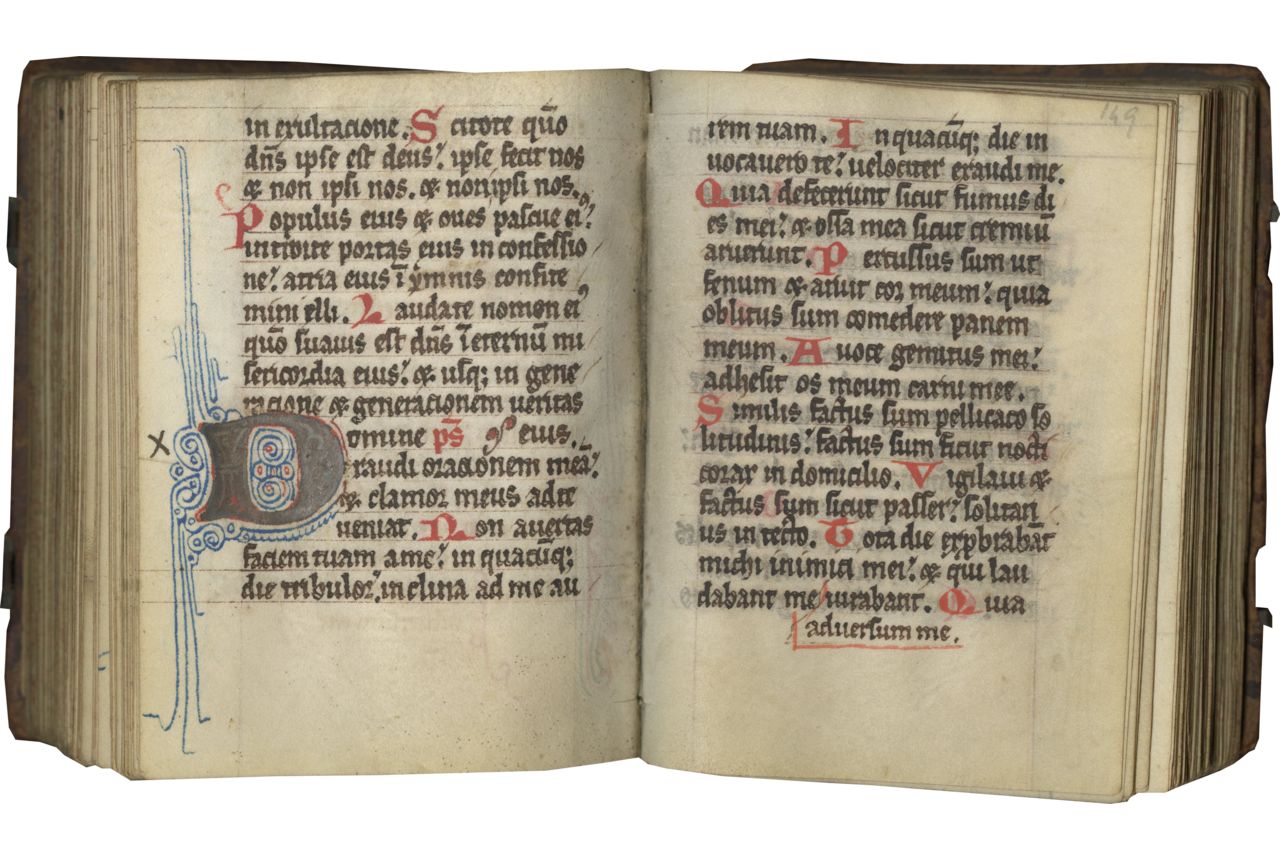 in exultacione. Scitote quo̅
dn̅s ipse est deus: ipse fecit nos
& non ipsi nos. & non ipsi nos.
Populus eius & oues pascue ei9:
introite portas eius in confessio
ne: atria eius i̅ ymnis confite
mini illi. Laudate nomen ei9
quo̅ suauis est dn̅s i̅ eternu̅ mi
sericordia eius: & usq; in gene
racione & generacionem ueritas
Domine ps̅ eius.
exaudi oracionem mea̅:
& clamor meus ad te
ueniat. Non auertas
faciem tuam a me: in quacu̅q;
die tribulor, in clina ad me au
149
rem tuam. In quacu̅q; die in
uocauero te: uelociter exaudi me.
Quia defecerunt sicut fumus di
es mei: & ossa mea sicut cremiu̅
aruerunt. Percussus sum ut
fenum & aruit cor meum: quia
oblitus sum comedere panem
meum. A uoce gemitus mei:
adhesit os meum carni mee.
Similis factus sum pellicano so
litudinis: factus sum sicut nocti
corax in domicilio. Vigilaui &
factus sum sicut passer: solitari
us in tecto. Tota die exprobraba̅t
michi inimici mei: & qui lau
dabant me iurabant. Quia
aduersum me.
X